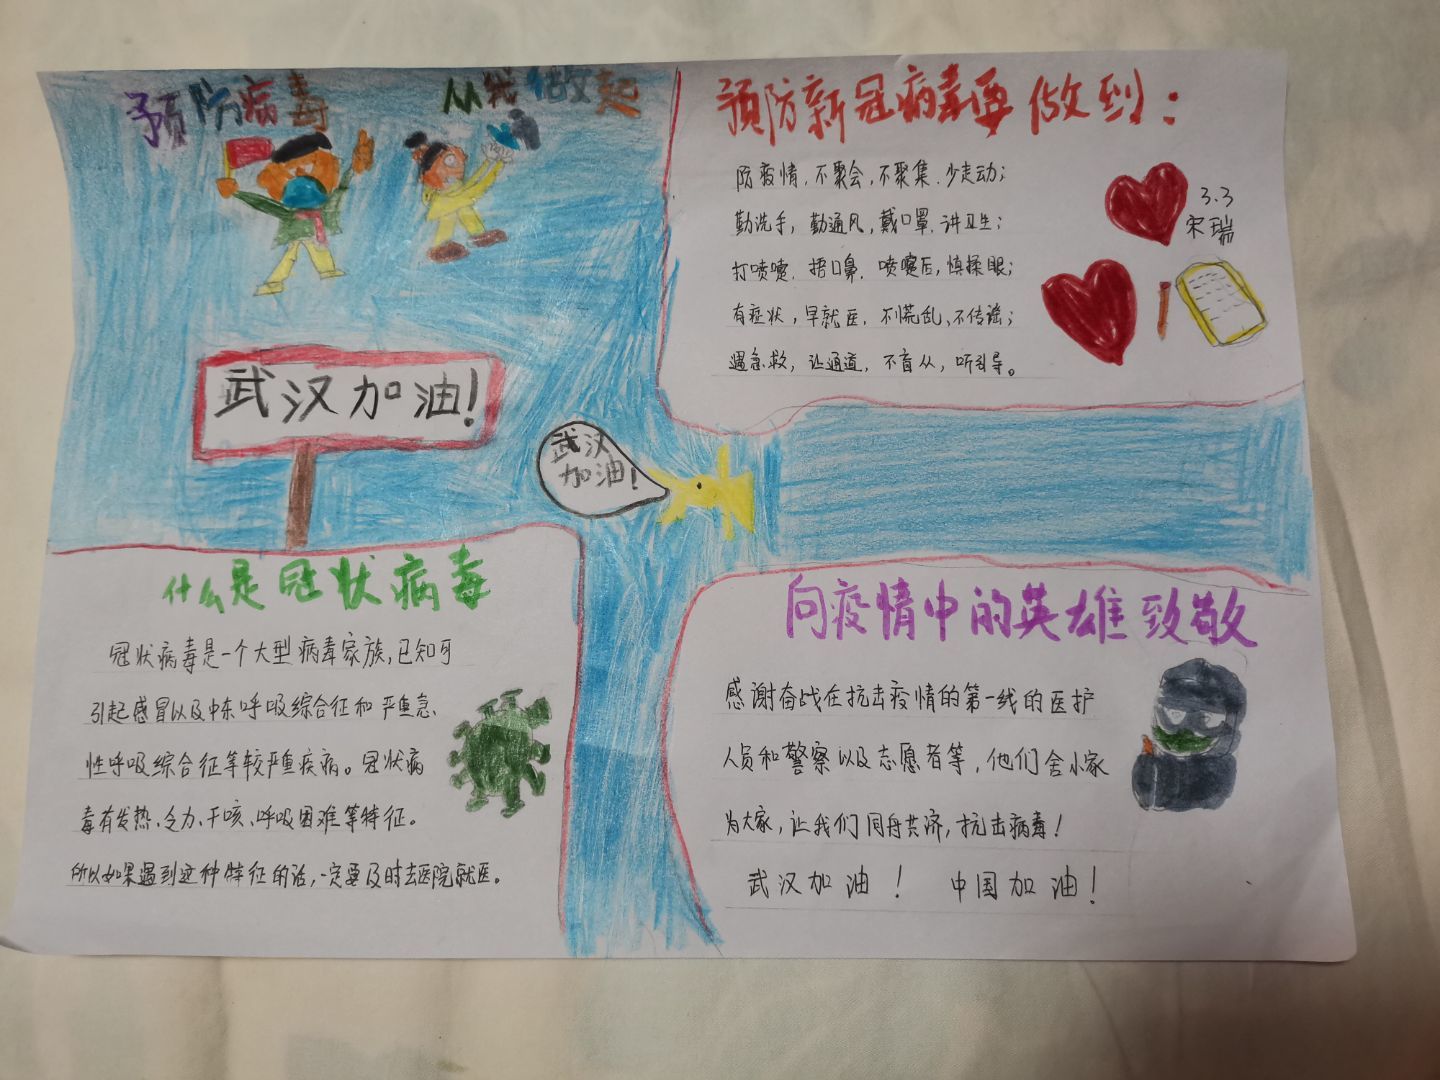 预防病毒 从我做起
武汉加油！
武汉
加油！
预防新冠病毒要做到：
防疫情，不聚会，不聚集，少走动；
勤洗手，勤通风，戴口罩，讲卫生；
打喷嚏，捂口鼻，喷嚏后，慎揉眼；
有症状，早就医，不慌乱、不传谣；
遇急救，让通道，不盲从，听引导。
3.3
宋瑞
什么是冠状病毒
冠状病毒是一个大型病毒家族，已知可
引起感冒以及中东呼吸综合征和严重急
性呼吸综合征等较严重疾病。冠状病
毒有发热、乏力、干咳、呼吸困难等特征。
所以如果遇到这种特征的话，一定要及时去医院就医。
向疫情中的英雄致敬
感谢奋战在抗击疫情的第一线的医护
人员和警察以及志愿者等，他们舍小家
为大家，让我们同舟共济，抗击病毒！
武汉加油！ 中国加油！